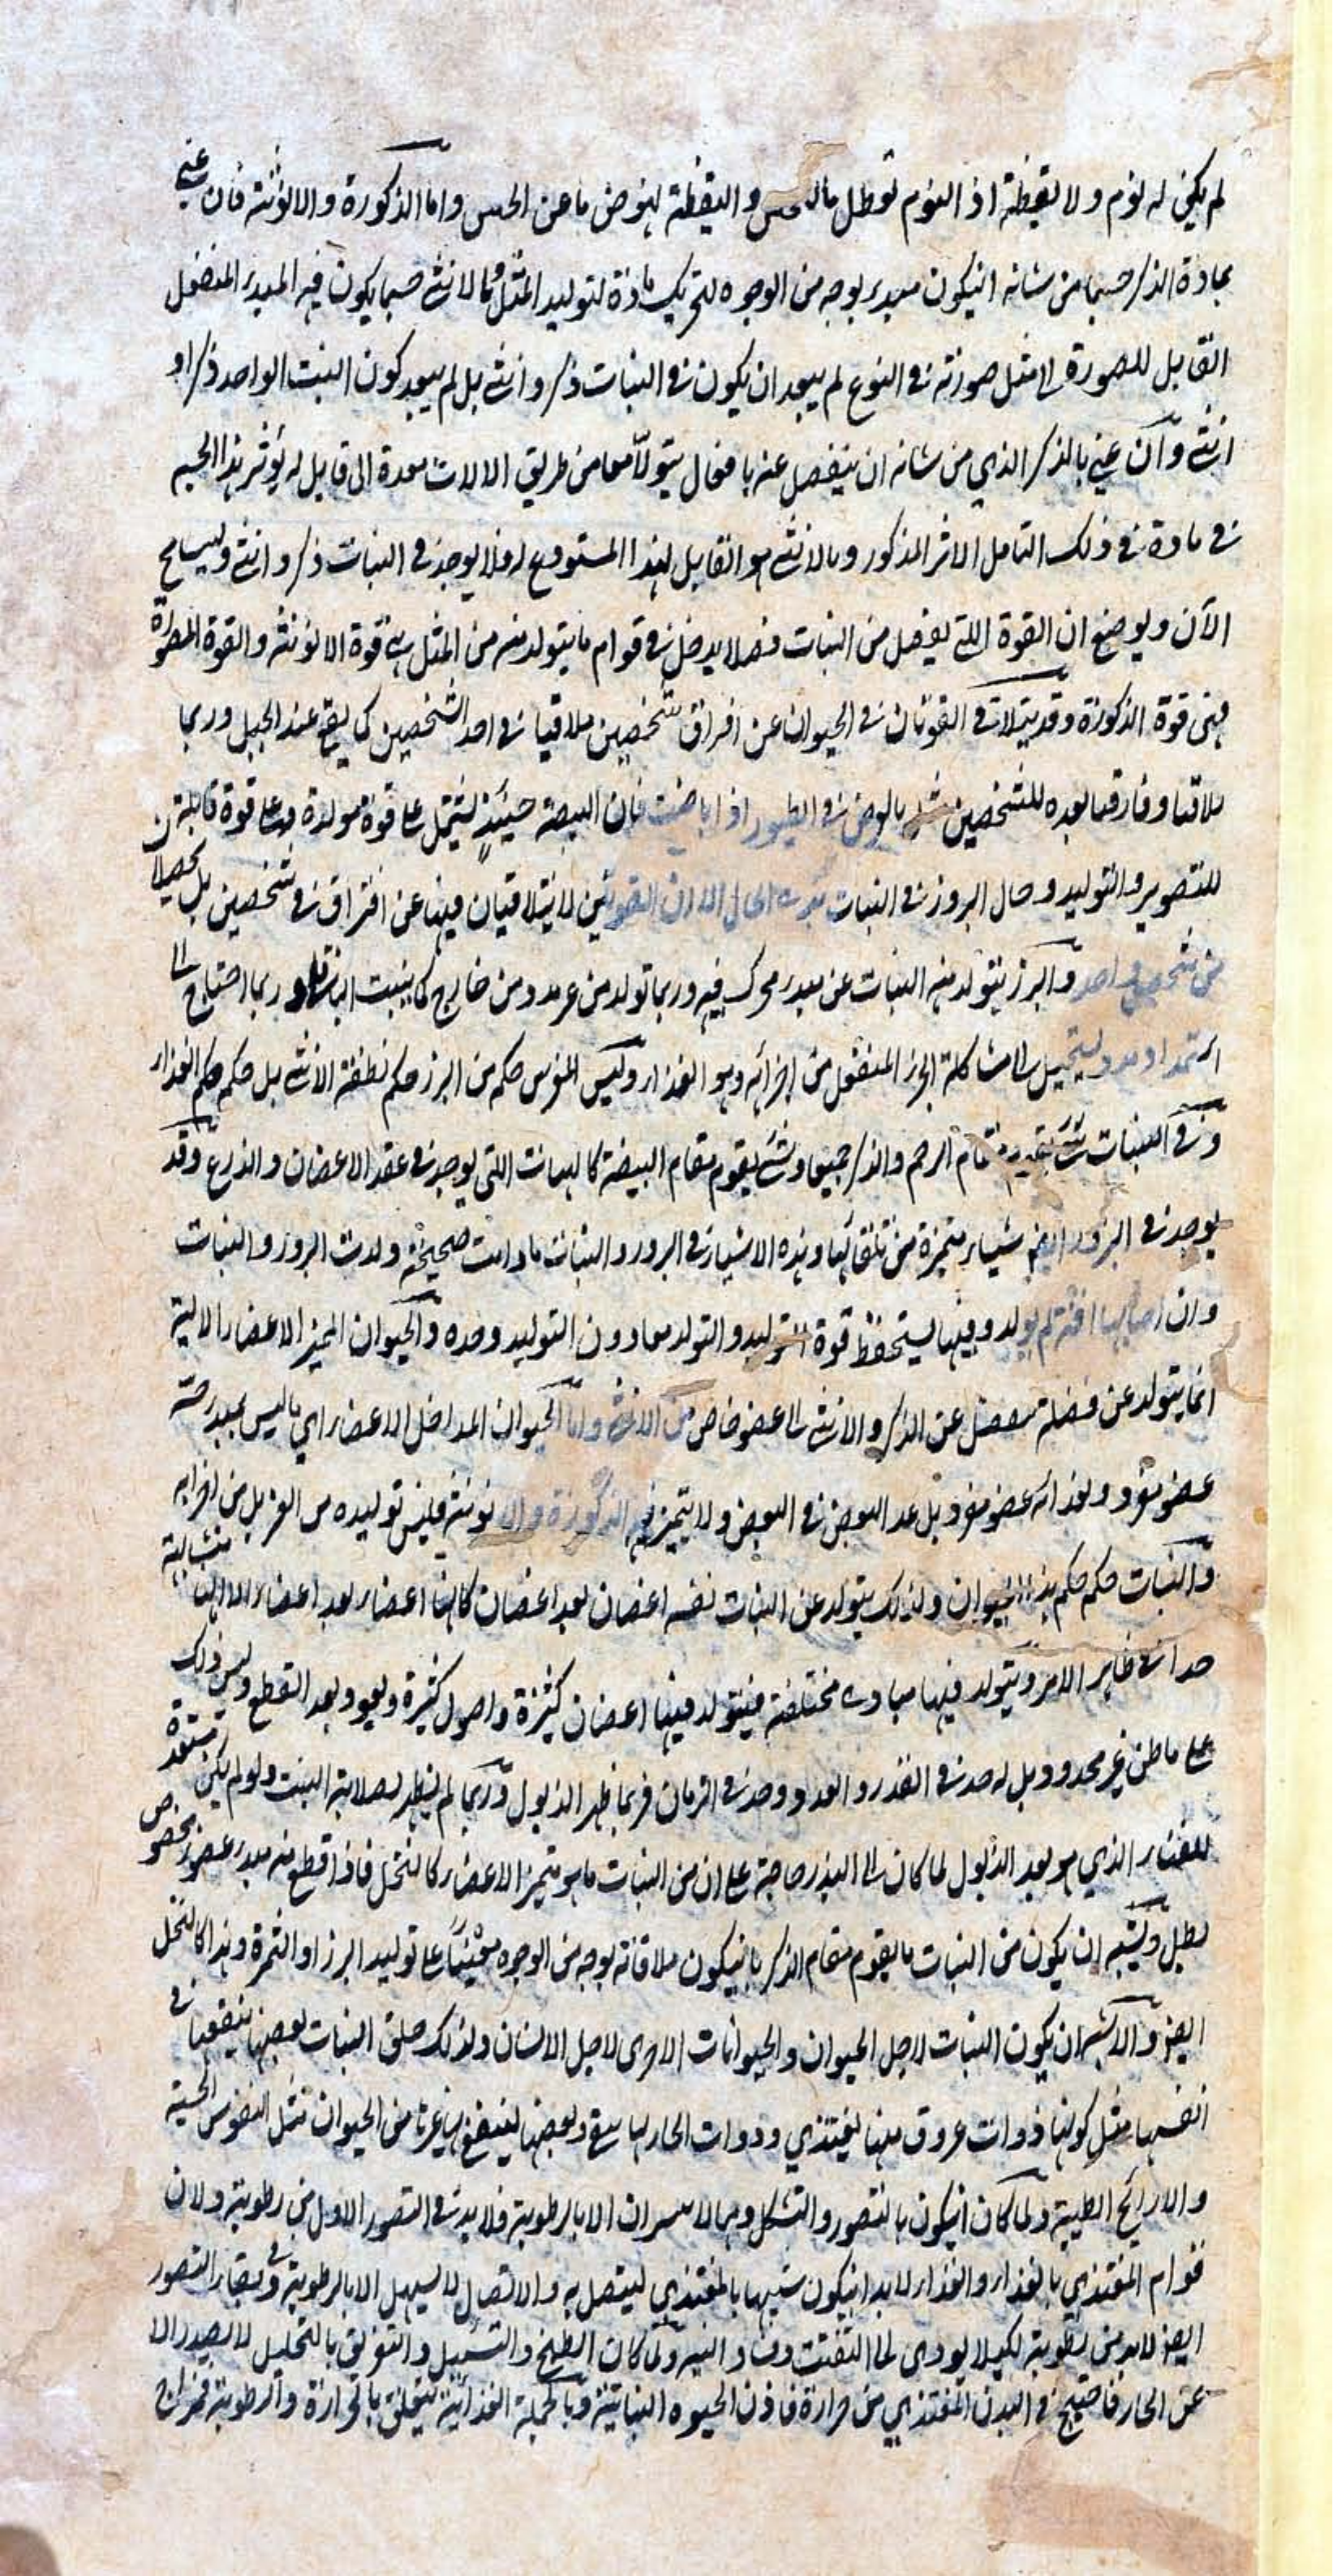 لم يكن له نوم ولا يقظة اذ النوم تعطل ما للحس واليقظة نهوض ما عن الحس واما الذكورة والانوثة فان عني
بمادة الذكر جسما من شانه ان يكون مبدء بوجه من الوجوه لتحريك مادة لتوليد المثل وبالانثى جسما يكون فيه المبدء المنفعل
القابل للصورة الى مثل صورته في النوع لم يبعد ان يكون في النبات ذكر وانثى بل لم يبعد كون النبت الواحد ذكرا و
انثى وان عني بالذكر الذي من شانه ان ينفصل عنه بافعال يتولا معا من طريق الالات معدة الى قابل له يؤثر بهذا الجسم
في مادة في ذلك القابل الاثر المذكور وبالانثى هو القابل لهذا المستودع له فلا يوجد في النبات ذكر وانثى وليسامح
الآن ويوضع ان القوة التي يفصل من النبات فصلا يدخل في قوام ما يتولد منه من المثل هي قوة الانوثة والقوة المصورة
فهي قوة الذكورة وقد يتلاقى القوتان في الحيوان عن افراق شخصين ملاقيا في احد الشخصين كما يقع عند الحبل وربما
تلاقتا وفارقتا بعده للشخصين مثل بالعرض في الطيور اذا باضت فان البيضة حينئذ تشتمل على قوة مولدة وعلى قوة قابلة
للتصوير والتوليد وحال البروز في النبات هذه الحال الا ان القوتين لا يتلاقيان فيها عن افتراق في شخصين بل يحصلان
من شخص واحد والبرز يتولد منه النبات عن مبدء محرك فيه وربما تولد من غير مدد من خارج كما ينبت الباقلا وربما احتاج الى
استمداد مدد يستحيل الى مشاكلة الجزء المنفعل من اجزائه وهو الغذاء وليس المغرس حكمه من البرز حكم نطفة الانثى بل حكمه حكم الغذاء
وفي النبات شئ يقوم مقام الرحم والذكر جميعا وشئ يقوم مقام البيضة كالهنات التي يوجد في عقد الاغصان والذرع وقد
يوجد في البزور ايضا شياء متميزة من تلقائها وهذه الاشياء في البزور والنبات ما دامت صحيحة ولدت البزور والنبات
وان اصابها افة لم يولد وفيها يستحفظ قوة التوليد والتولد معا دون التوليد وحده والحيوان المميز الاعضاء الالية
انما يتولد عن فضلة تنفصل عن الذكر والانثى الى عضو خاص من الانثى واما الحيوان المداخل الاعضاء اي ما ليس مبدء حسه
عضو مفرد ولغذائه عضو مفرد بل عند البعض في البعض ولا يتميز فيه الذكورة والانوثة فليس توليده من الغير بل من اجزائه
والنبات حكمه حكم هذا الحيوان ولذلك يتولد عن النبات نفسه اغصان بعد اغصان كانها اعضاء بعد اعضاء الا انها متشابهة
جدا في ظاهر الامر ويتولد فيها مبادى مختلفة فيتولد فيها اغصان كثيرة واصول كثيرة ويعود بعد القطع وليس ذلك
على ما ظن غير محدود بل له حد في القدر والعدد وحد في الزمان فربما ظهر الذبول وربما لم يظهر لصلابة النبت ولو لم يكن مستعدة
للفناء الذي هو بعد الذبول لما كان الى البذر حاجة على ان من النبات ما هو متميز الاعضاء كالنخل فاذا قطع منه مبدء عضو مخصوص
بطل ويشبه ان يكون من النبات ما يقوم مقام الذكر بان يكون ملاقاته بوجه من الوجوه معينا على توليد البرز او الثمرة وهذا كالنخل
ايضا والاشبه ان يكون النبات لاجل الحيوان والحيوانات الاخرى لاجل الانسان ولذلك خلق النبات بعضها ينتفع بها في
انفسها مثل كونها ذوات عروق منها يغتذي وذوات الحاء لها سقف وبعضها لينتفع بها غيرها من الحيوان مثل النفوس الحسية
والارائح الطيبة ولما كان انما يكون بالتصور والتشكل وهما لا يتيسران الا بالرطوبة فلا بد في التصور الاول من رطوبة ولان
قوام المغتذي بالغذاء والغذاء لا بد ان يكون شبيها بالمغتذي ليتصل به والاتصال لا يسهل الا بالرطوبة وفي بقاء التصور
ايضا لا بد من رطوبة لكيلا يودى الى التفتت وفساد البنية ولما كان الطبخ والتسييل والتفريق بالتحليل لا يصدر الا
عن الحار فاحتيج في البدن المغتذي من حرارة فاذن الحيوة النباتية وبالجملة الغذائية يتعلق بالحرارة والرطوبة فمزاج